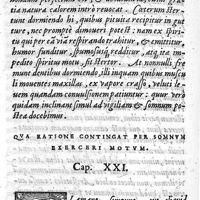 natura calorem intrò reuocat. Cæterum
dormiendo hi, quibus pituita recipitur in gut
ture, nec promptè dimoueri potest: nam ex spiri-
tu qui per eã viã respirando trahitur, & emittitur
humor funditur, spumosusq; redditur, atq; ita im-
pedito spiritu motu, fit stertor. At nonnulli fre-
munt dentibus dormiendo, illi inquam quibus muscu
li mouentes maxillas, ex vapore crasso, velut le-
uem quandam conuulsionem patiuntur: quos verè
quidam inclinant simul ad vigiliam & somnum po
stea docebimus.
QVA RATIONE CONTINGAT PER SOMNVM
EXERCERI MOTVM.
Cap. XXI.